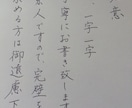 意
一字一字
寧にお書き致します
素人ですので、完璧を
める方は御遠慮下